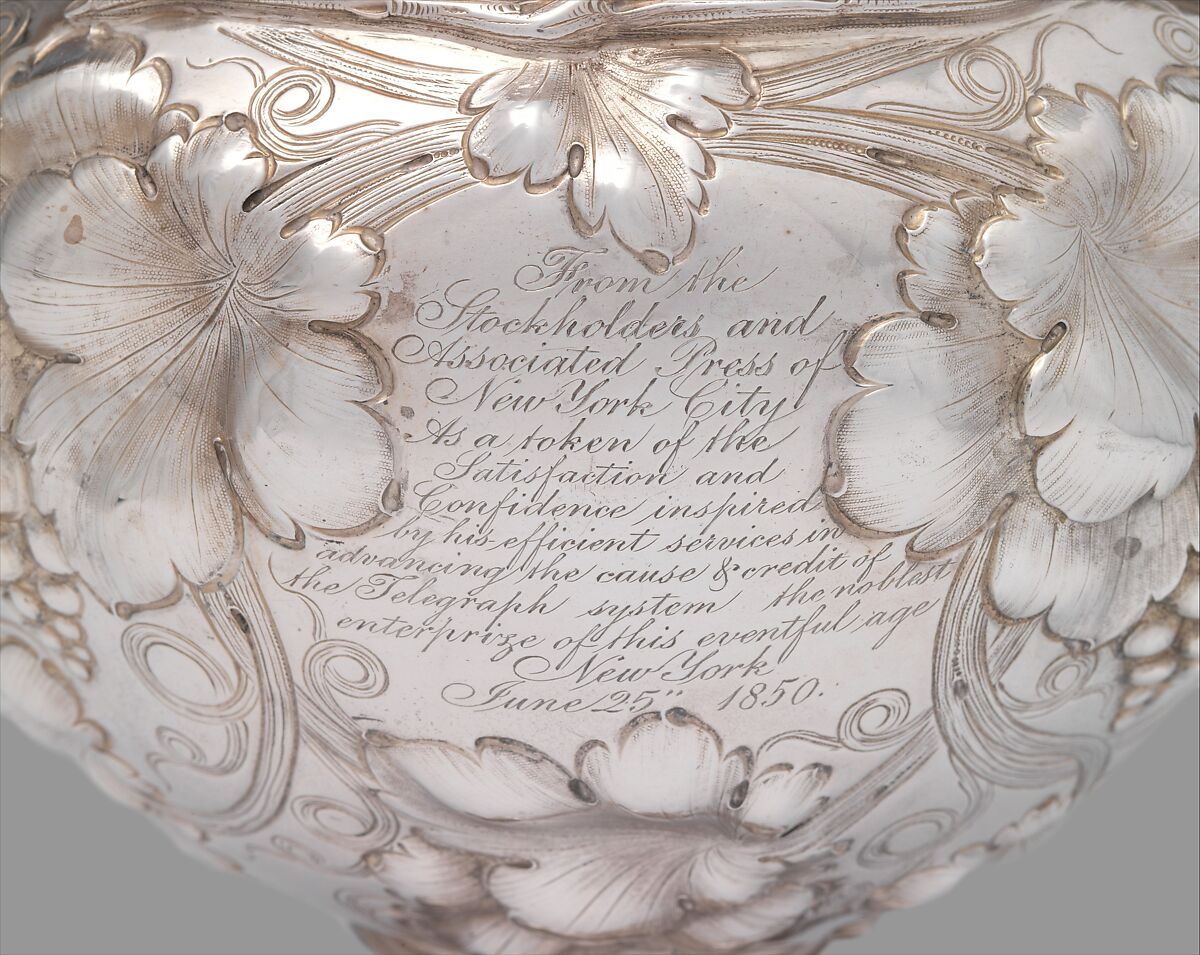 From the
Stockholders and
Associated Press of
New York City
As a token of the
Satisfaction and
Confidence inspired
by his efficient services in
advancing the cause & credit of
the Telegraph system the noblest
enterprize of this eventful age
New York
June 25" 1850.